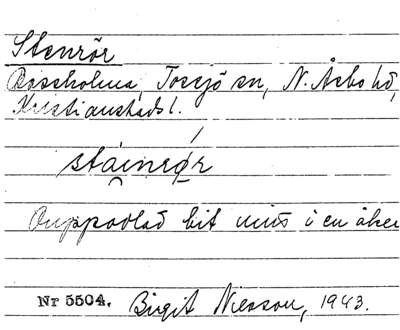 Stenrör
Bosholma, Tossjö sn, N. Åsbo hd,
Kristianstads l.
stáinrør
Ouppodlad bit mitt i en åker
Nr 5504. Birgit Nilsson, 1943.